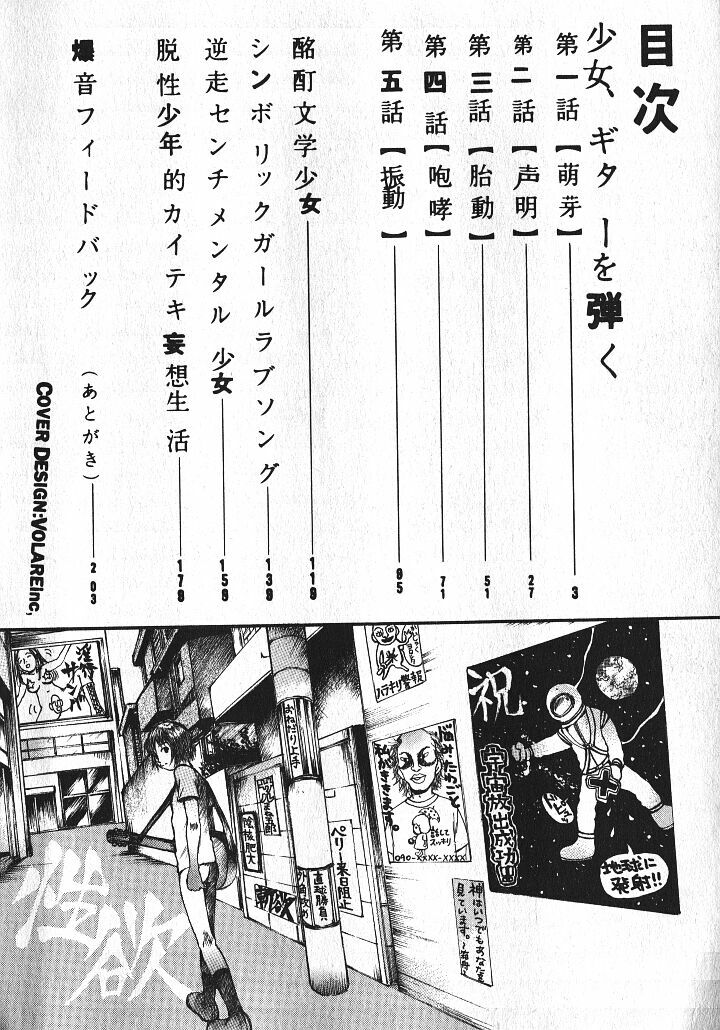 目次
少女、ギターを弾く
第一話【萌芽】 3
第二話【声明】 27
第三話【胎動】 51
第四話【咆哮】 71
第五話【振動】 95
酩酊文学少女 119
シンボリックガールラブソング 139
逆走センチメンタル少女 159
脱性少年的カイテキ妄想生活 179
爆音フィードバック (あとがき) 203
COVER DESIGN:VOLAREInc,
祝
宇宙放出成功
地球に発射!!
ハラキリ警報
悩みたごと
私がききます。
話してスッキリ
090-XXXX-XXXX
神はいつでもあなたを見ています。
おねだり上手
ペリー来日阻止
直球勝負
外角攻め
陰核肥大
性欲